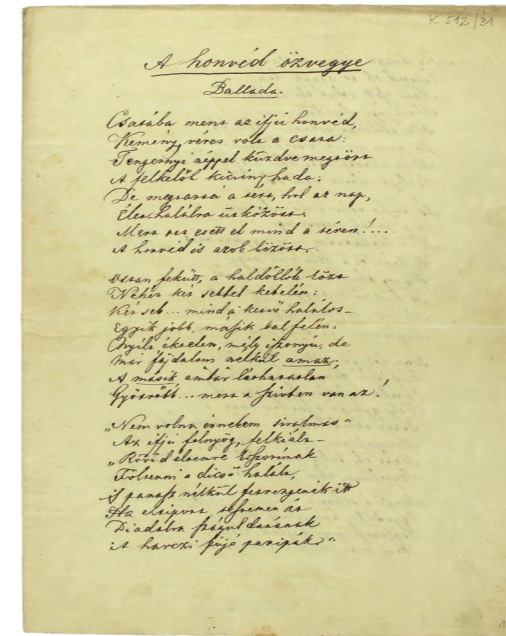 K 512/31
A honvéd özvegye
Ballada.
Csatába ment az ifjú honvéd,
Kemény, véres volt a csata:
Tengernyi néppel küzdve megtört
A felkelők kicsiny hada.
De megtartá a tért, hol az nap,
Élet halálra ütközött.
Mert ott esett el mind a téren!...
A honvéd is azok között.
Ottan feküdt, a haldoklók közt
Nehéz két sebbel kebelén:
Két seb... mind a kettő halálos –
Egyik jobb, másik bal felén:
Nyílt az egyik, mély iszonyú, de
Már fájdalom nélkül amaz;
A másik ámbár láthatatlan
Gyötrőbb... mert a szívben van az!
„Nem volna énnekem siralmas"
Az ifjú felnyög, felkiált –
„Rövid életemre koszorúnak
Fölvenni a dicső halált,
S panasz nélkül
Ha
Diadalra
A harczi fújó paripák."